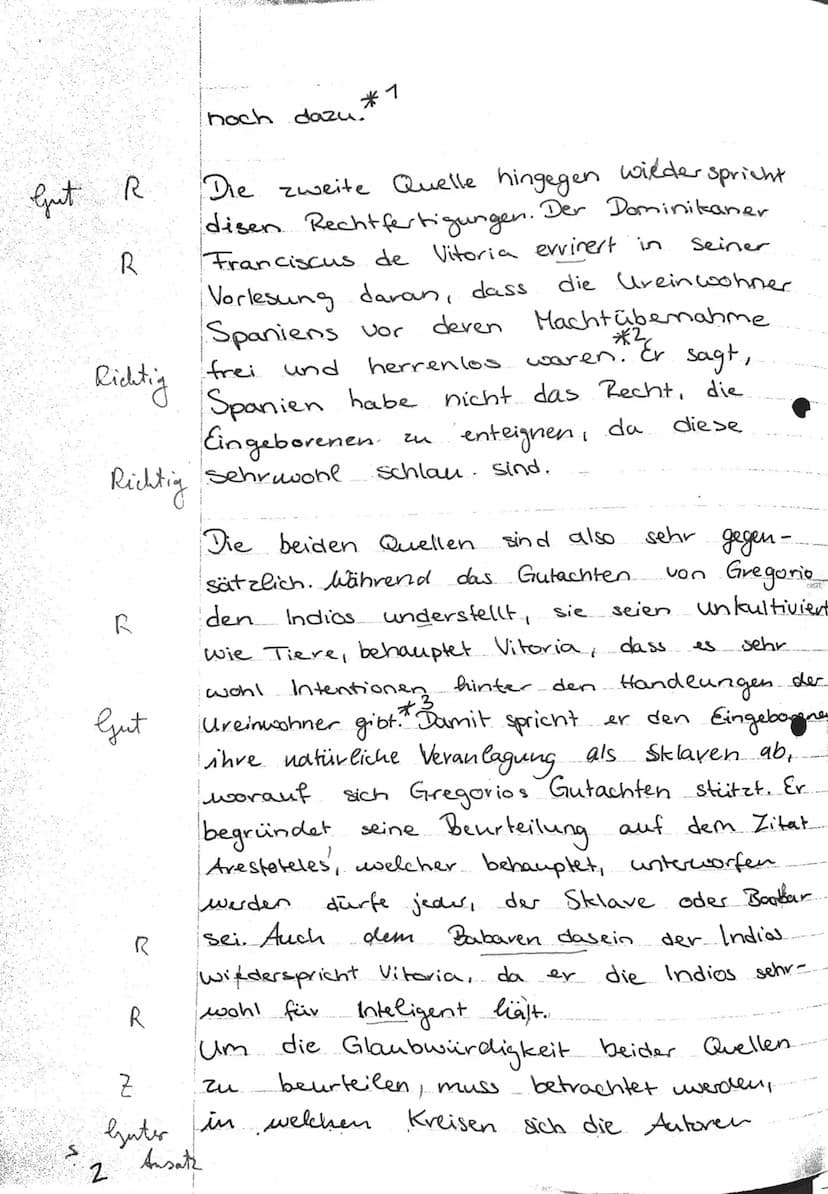 noch dazu.*1
Gut R Die zweite Quelle hingegen wiederspricht
disen Rechtfertigungen. Der Dominikaner
R Franciscus de Vitoria errinert in seiner
Vorlesung daran, dass die Ureinwohner
Spaniens vor deren Machtübernahme
frei und herrenlos waren.*2 Er sagt,
Richtig Spanien habe nicht das Recht, die
Eingeborenen zu enteignen, da diese
Richtig sehrwohl schlau sind.
Die beiden Quellen sind also sehr gegen-
sätzlich. Während das Gutachten von Gregorio
R den Indios understellt, sie seien unkultiviert
wie Tiere, behauptet Vitoria, dass es sehr
wohl Intentionen hinter den Handlungen der
Gut Ureinwohner gibt.*3 Damit spricht er den Eingeborenen
ihre natürliche Veranlagung als Sklaven ab,
worauf sich Gregorios Gutachten stützt. Er
begründet seine Beurteilung auf dem Zitat
Arestoteles', welcher behauptet, unterworfen
werden dürfe jeder, der Sklave oder Barbar
R sei. Auch dem Babaren dasein der Indios
wiederspricht Vitoria, da er die Indios sehr-
R wohl für Inteligent hält.
Um die Glaubwürdigkeit beider Quellen
Z zu beurteilen, muss betrachtet werden,
Guter Ansatz in welchen Kreisen sich die Autoren
S 2